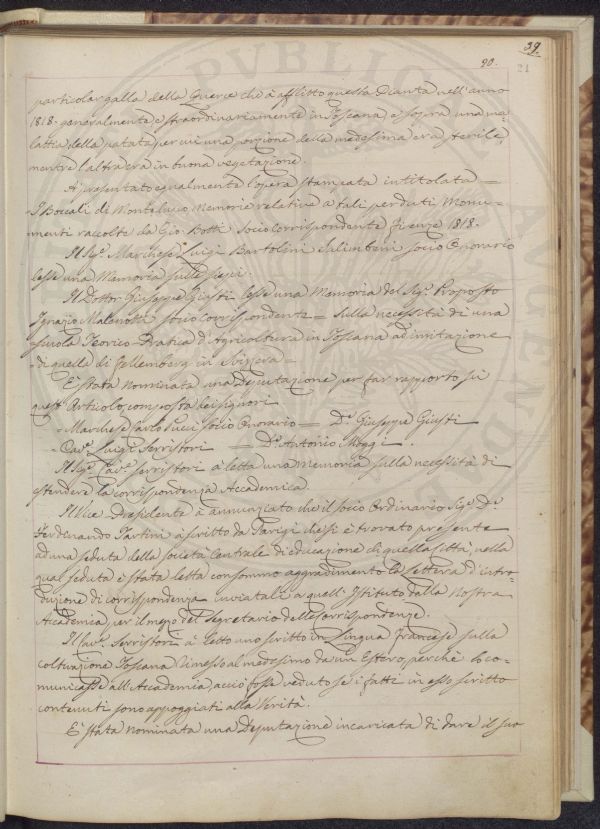 39.
90. 21
particolar galla della Querce che à afflitto questa Pianta nell'anno
1818. generalmente e straordinariamente in Toscana e sopra una ma„
lattia della patata, per cui una porzione della medesima era sterile,
mentre l'altra era in buona vegetazione.
À presentato egualmente l'opera stampata intitolata =
I Boccali di Montelupo Memorie relative a tali perduti Monu„
menti raccolte da Gio: Botti Socio Corrispondente Firenze 1818.
Il Sig.r Marchese Luigi Bartolini Salimbeni Socio Onorario
lesse una Memoria sulle
Il Dottor Giuseppe Giusti lesse una Memoria del Sig.r Proposto
Ignazio Malenotti Socio Corrispondente = Sulla necessità di una
Scuola Teorico-Pratica d'Agricoltura in Toscana ad imitazione
di quella di Fellemberg in Svizzera =
È stata nominata una Deputazione per far rapporto su
quest'Articolo, composta dei signori
Marchese Carlo Pucci Socio Onorario = D.r Giuseppe Giusti
Cav.r Luigi Serristori = D.r Antonio
Il Sig.r Cav.r Serristori à letta una Memoria sulla necessità di
estendere la corrispondenza Accademica.
Il Vice Presidente à annunziato che il socio Ordinario Sig.r D.r
Ferdinando Tartini à scritto da Parigi che si è trovato presente
ad una seduta della società Centrale di educazione di quella Città, nella
qual seduta è stata letta con sommo aggradimento la Lettera d'intro„
duzione di corrispondenza inviatale a quell'Istituto dalla Nostra
Accademia, per il mezzo del Segretario delle Corrispondenze.
Il Cav.r Serristori à letto uno scritto in Lingua Francese sulla
coltivazione Toscana rimesso al medesimo da un Estero, perchè lo co„
municasse all'Accademia, acciò fosse veduto se i fatti in esso scritto
contenuti sono appoggiati alla Verità.
È stata nominata una Deputazione incaricata di dare il suo